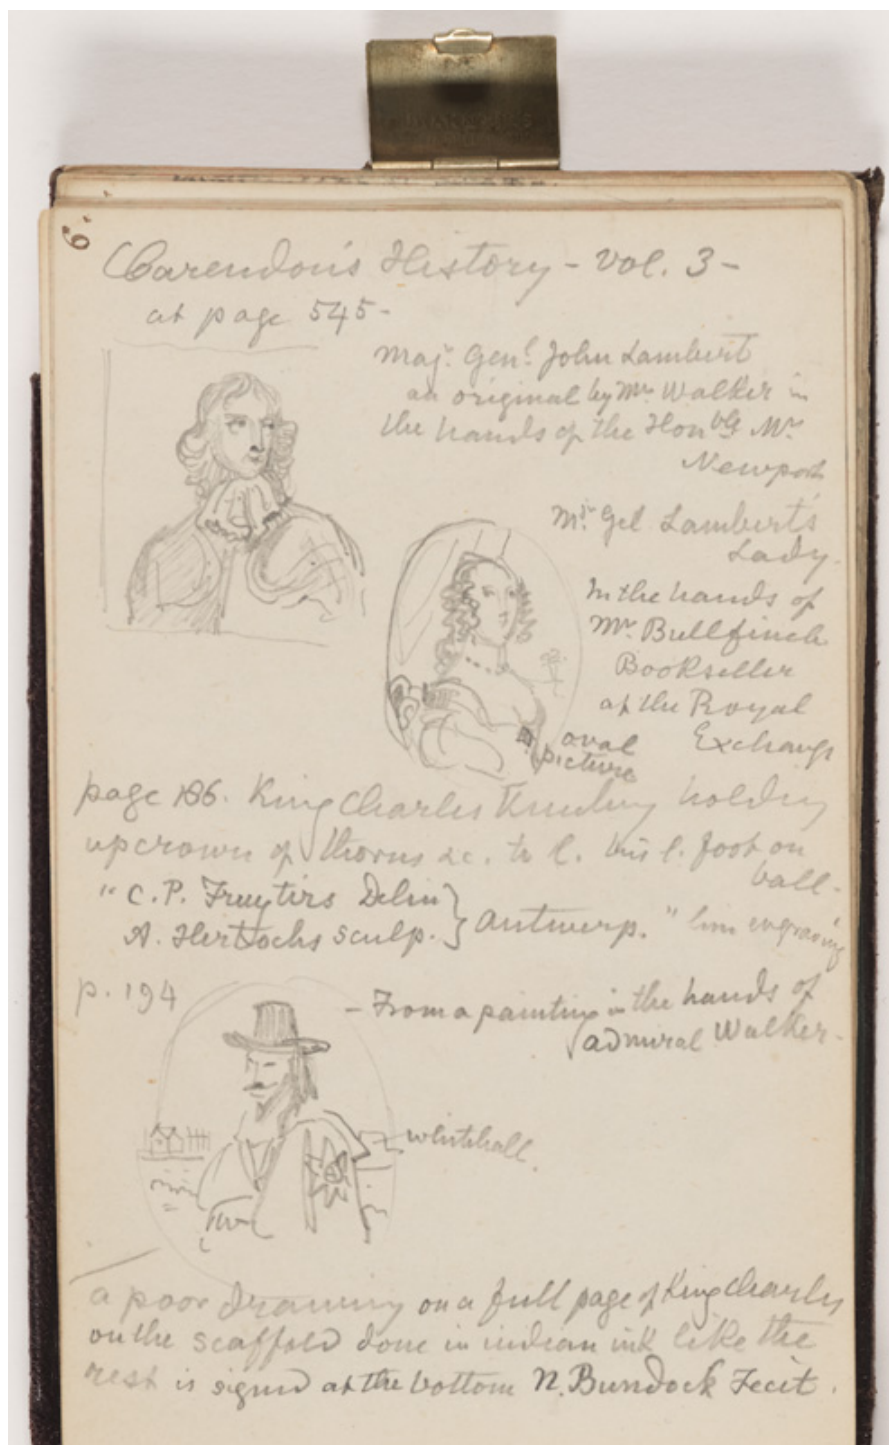 6.
Clarendon's History - Vol. 3 -
at page 545 -
Maj.r Gen.l John Lambert
an original by Mr. Walker in
the hands of the Honble Mr.
Newport
Mr. Gel Lambert's
Lady.
In the hands of
Mr. Bullfinch
Bookseller
at the Royal
Exchange
oval
picture
page 186. King Charles Kneeling holding
up crown of thorns &c. to l. his l. foot on
ball -
"C.P. Fruytirs Delin
A. Hertochs sculp. } Antwerp." line engraving
p. 194
- From a painting in the hands of
admiral Walker -
Whitehall.
a poor drawing on a full page of King Charles
on the scaffold done in indian ink like the
rest is signed at the bottom N. Burdock Fecit.